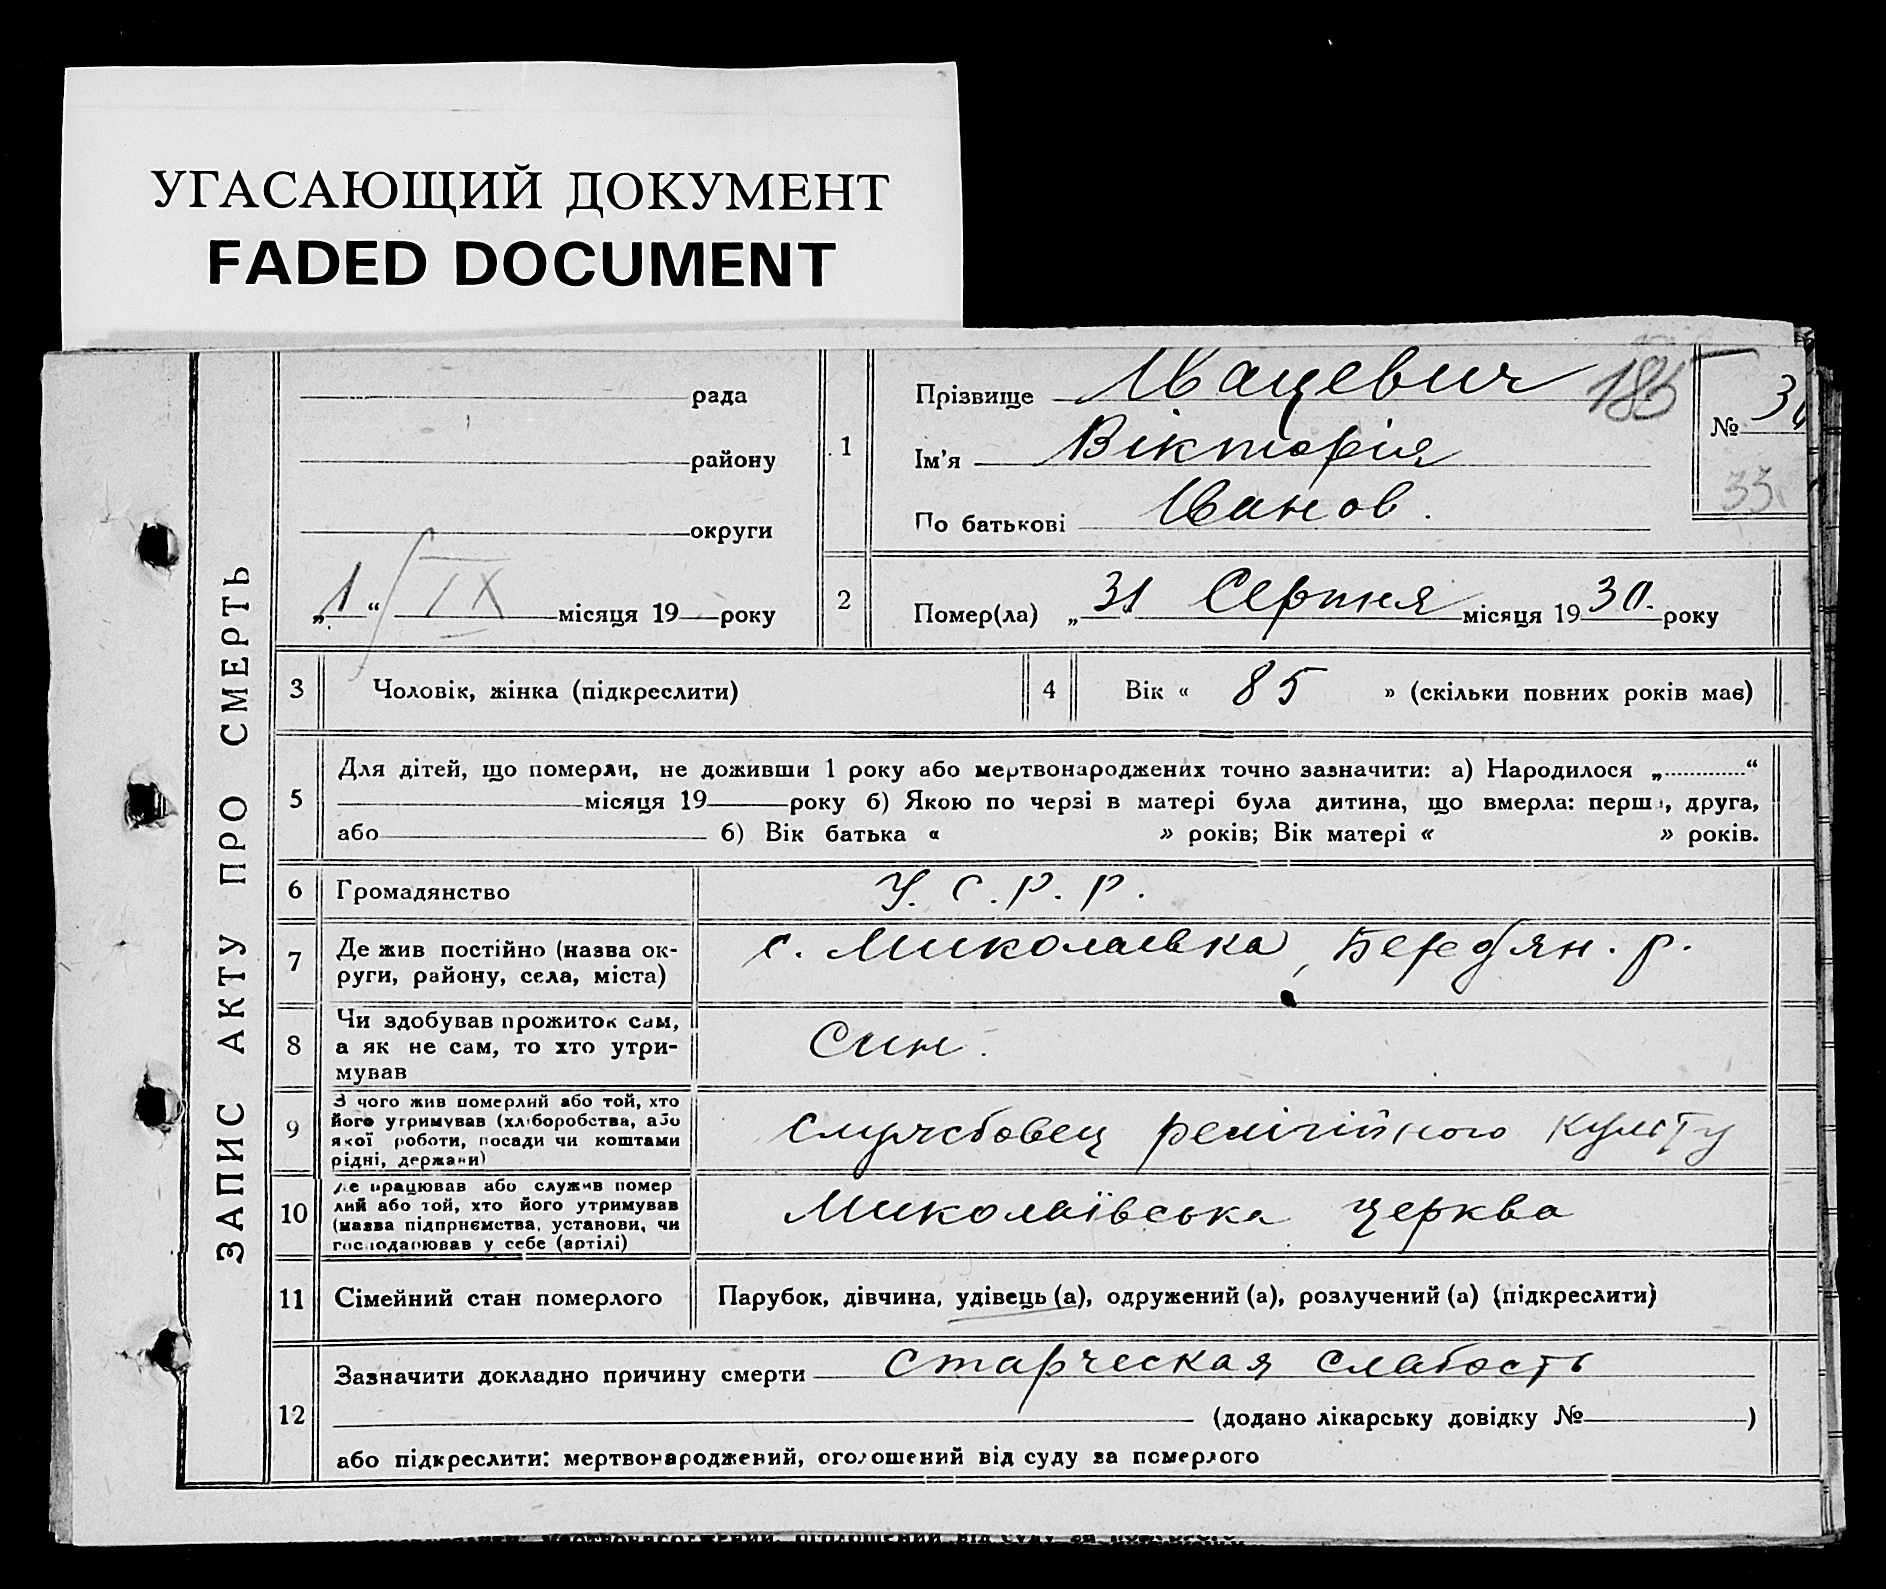 УГАСАЮЩИЙ ДОКУМЕНТ
FADED DOCUMENT
ЗАПИС АКТУ ПРО СМЕРТЬ
рада
району
округи
„1“ IX місяця 19 року
1
Прізвище Ивацевич
Ім'я Вікторія
По батькові Иванов.
185
№ 3
33
2
Помер(ла) „31 Серпня місяця 1930. року
3 Чоловік, жінка (підкреслити)
4 Вік « 85 » (скільки повних років має)
5
Для дітей, що померли, не доживши 1 року або мертвонароджених точно зазначити: а) Народилося „ “
місяця 19 року б) Якою по черзі в матері була дитина, що вмерла: перша, друга,
або б) Вік батька « » років; Вік матері « » років.
6 Громадянство У.С.Р.Р.
7 Де жив постійно (назва ок-
руги, району, села, міста)
с. Миколаївка, Бердян. р.
8
Чи здобував прожиток сам,
а як не сам, то хто утри-
мував
Син.
9
З чого жив померлий або той, хто
його утримував (хліборобства, або
якої роботи, посади чи коштами
рідні, держави)
службовец релігійного культу
10
Де працював або служив помер
лий або той, хто його утримував
(назва підприємства, установи, чи
господарював у себе (артілі)
Миколаївська церква
11 Сімейний стан померлого Парубок, дівчина, удівець (а), одружений (а), розлучений (а) (підкреслити)
12
Зазначити докладно причину смерти старческая слабость
(додано лікарську довідку № )
або підкреслити: мертвонароджений, оголошений від суду за померлого